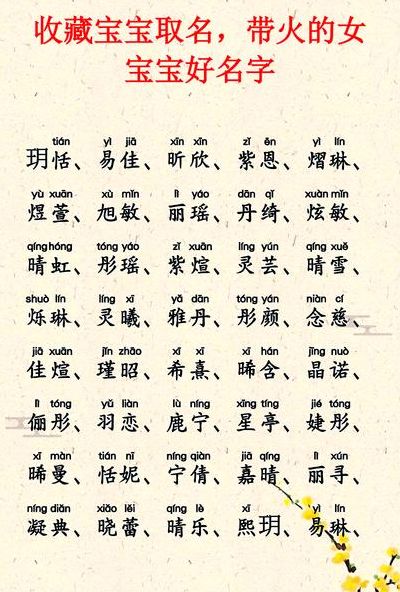 收藏宝宝取名，带火的女
宝宝好名字
tián yì jiā xīn xīn zǐ ēn yì lín
玥恬、易佳、昕欣、紫恩、熠琳、
yù xuān xù mǐn lì yáo dān qǐ xuàn mǐn
煜萱、旭敏、丽瑶、丹绮、炫敏、
qíng hóng tóng yáo zǐ xuān líng yún qíng xuě
晴虹、彤瑶、紫煊、灵芸、晴雪、
shuò lín líng xī yǎ dān tóng yán niàn cí
烁琳、灵曦、雅丹、彤颜、念慈、
jiā xuān jǐn zhāo xī xī xī hán jīng nuò
佳煊、瑾昭、希熹、晞含、晶诺、
lì tóng yǔ liàn lù níng xīng tíng jié tóng
俪彤、羽恋、鹿宁、星亭、婕彤、
xī màn tián nī níng qiàn jiā qíng lì xún
晞曼、恬妮、宁倩、嘉晴、丽寻、
níng diǎn xiǎo lěi qíng lè xī yì lín
凝典、晓蕾、晴乐、熙玥、易琳、